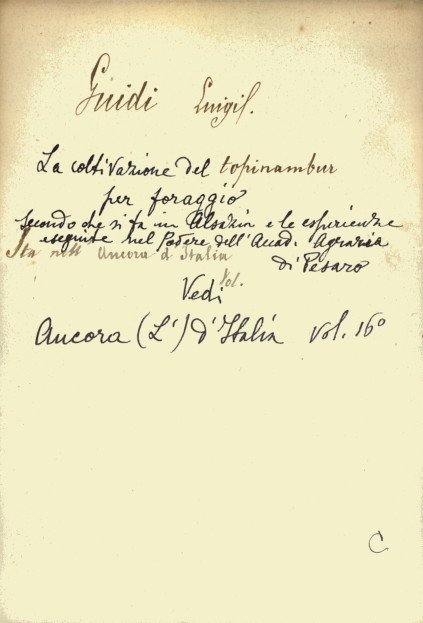 Guidi Luigi.
La coltivazione del topinambur
per foraggio
secondo che si fa in Alsazia e le esperienze
eseguite nel Podere dell'Accad. Agraria
di Pesaro
Sta nell' Ancora d'Italia
Vol.
Vedi
Ancora (L') d'Italia vol. 16º
C